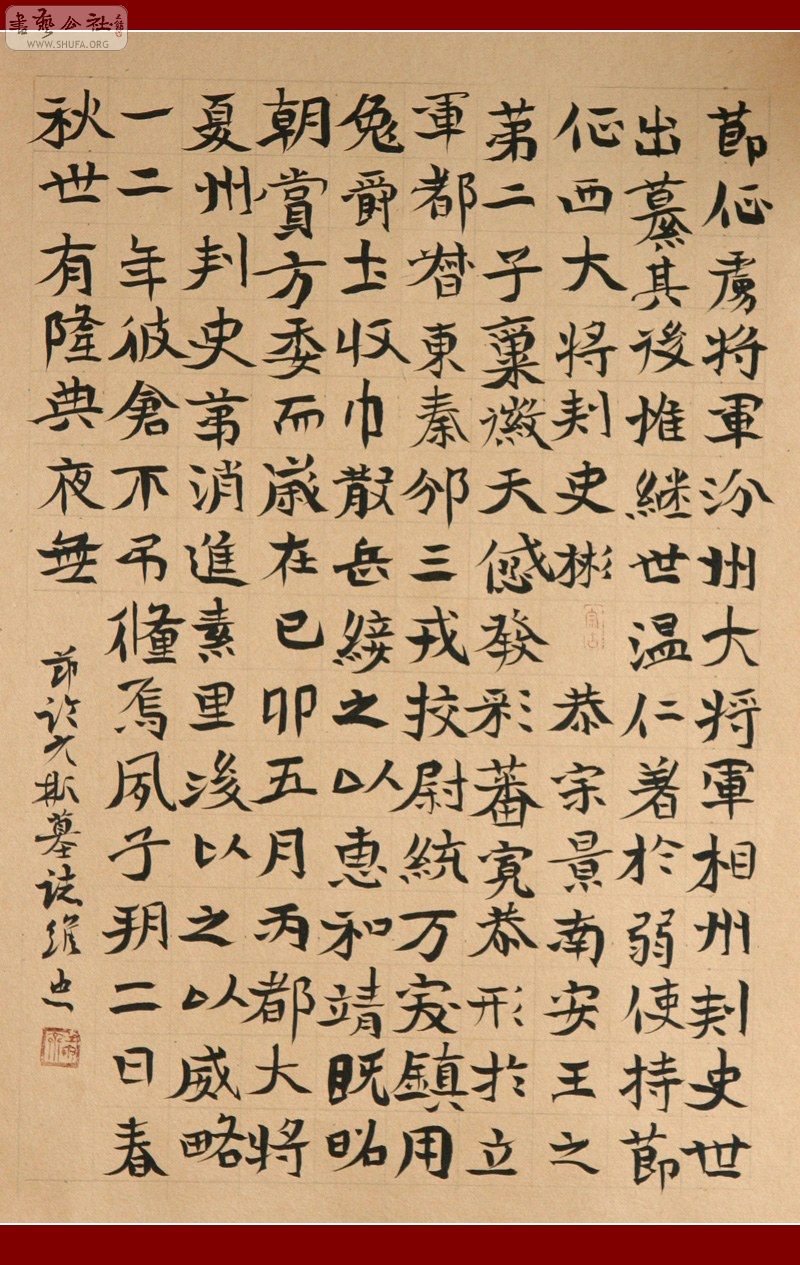 書藝公社
WWW.SHUFA.ORG
節征虜將軍汾州大將軍相州刾史世
出慕其後惟継世温仁著於弱使持節
征西大將刾史彬恭宗景南安王之
第二子稟徽天感發彩蕃寛恭形於立
軍都督東秦邠三戎挍尉統万突鎮用
兔爵士收巾散岳綏之以恵和靖既昭
朝賞方委而嵗在已卯五月丙都大將
夏州刾史第消進素里後以之以威略
一二年彼倉不弔焉夙子朔二日春
秋世有隆典夜無
節墓誌維忠